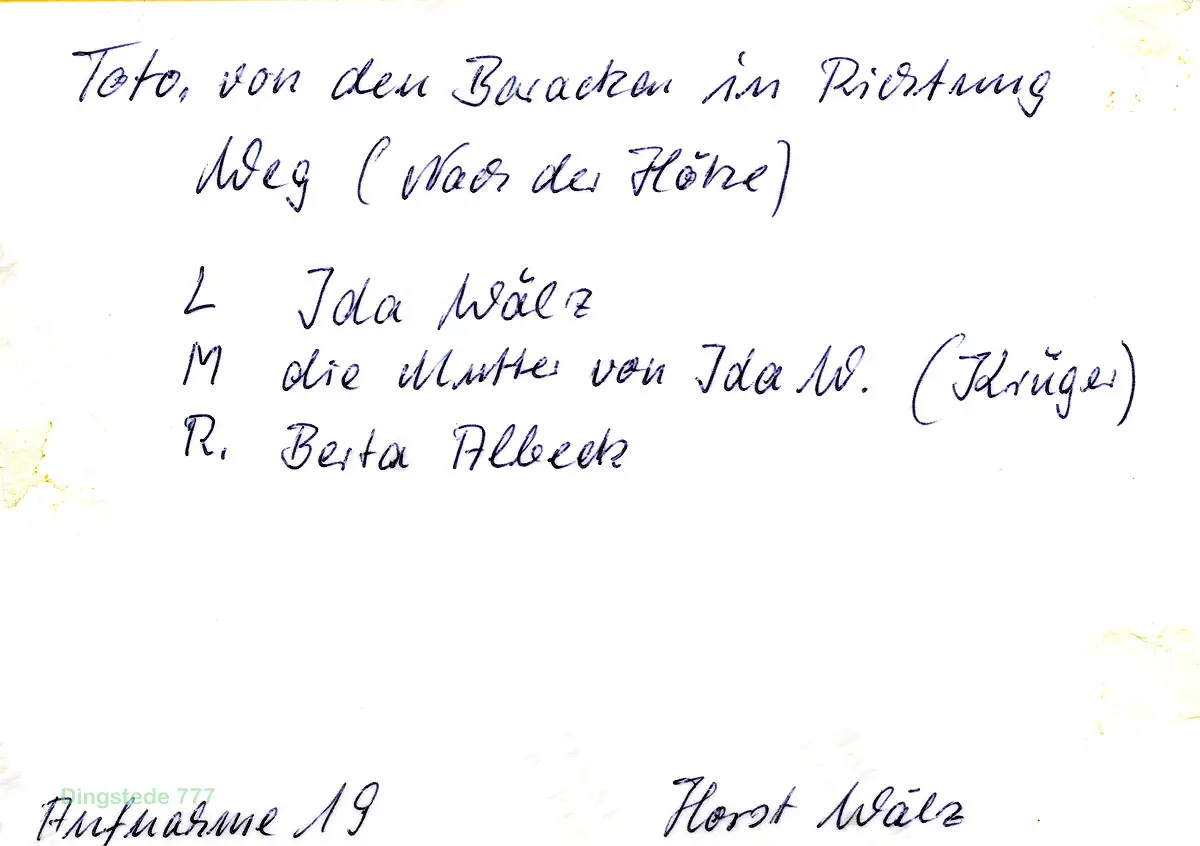 Foto, von den Baracken in Richtung
Weg (Nach der Hötze)
L Ida Wälz
M die Mutter von Ida W. (Krüger)
R. Berta Albeck
Dingstede 777
Aufnahme 19 Horst Wälz